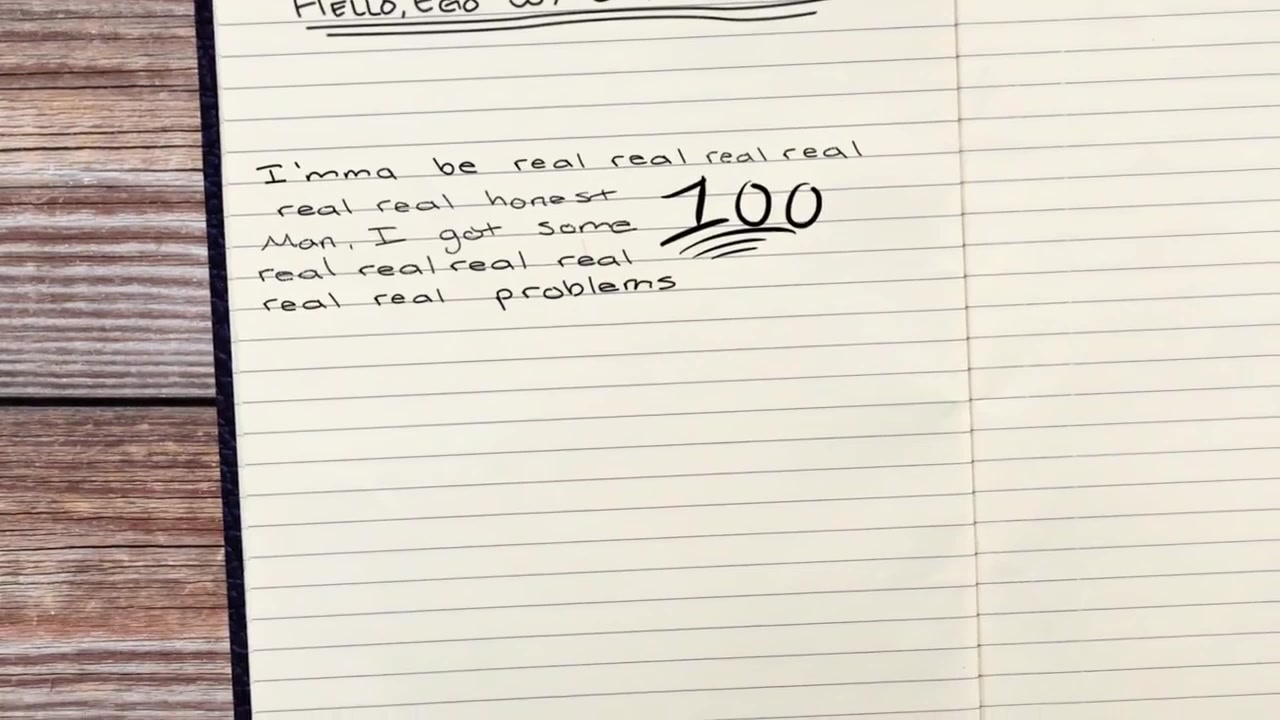 HELLO, EGO
I'mma be real real real real
real real honest
100
Man, I got some
real real real real
real real problems